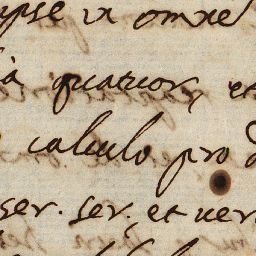 ipse ut omne
à quatuor, et
calculo pro
ser. ser. et ver